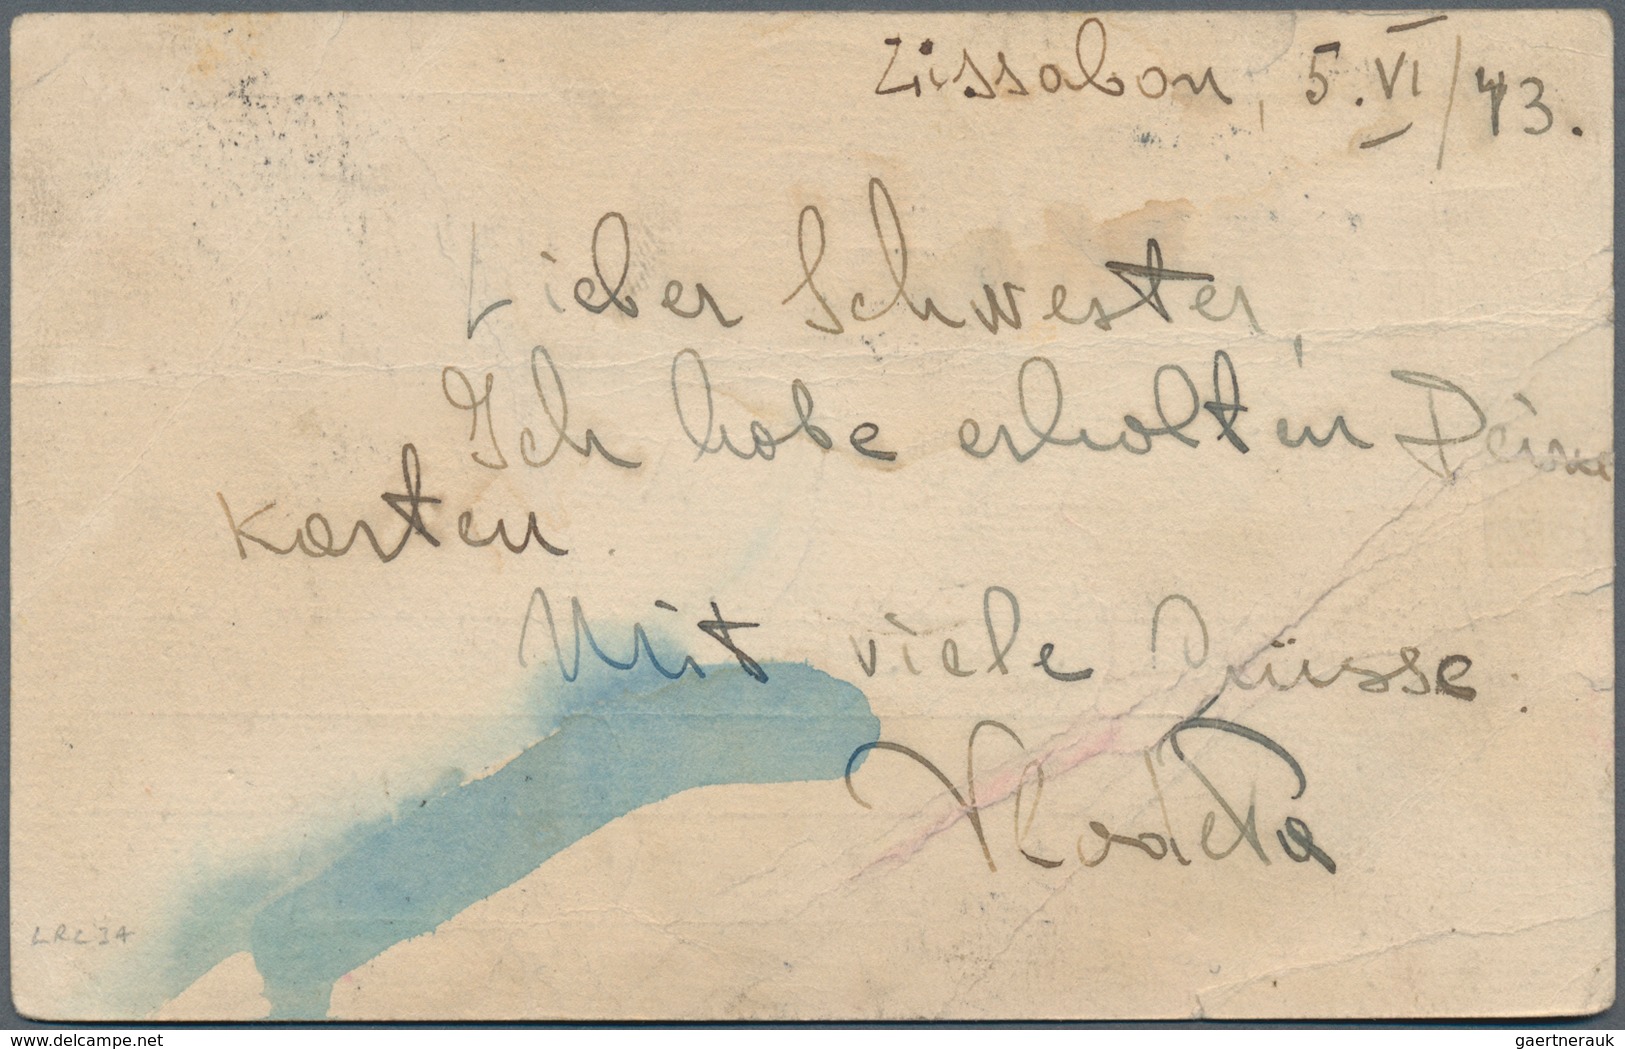 Lissabon, 5.VI/43.
Lieber Schwester,
Ich habe erhalten Deine
Karten.
Mit viele Grüsse.
Vladeta
LRC 34
www.delcampe.net
gaertnerauk